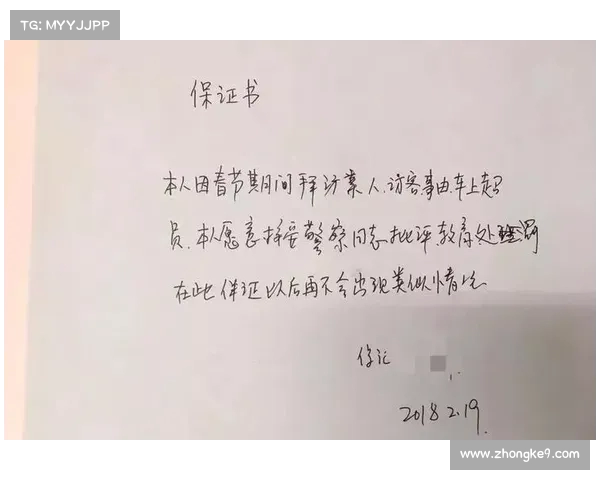 TG: MYYJJPP
保证书
本人因春节期间拜访案人、访客事由车上超
员、本人愿意接受警察同志批评教育处罚
在此保证以后再不会出现类似情况
保证
2018.2.19.
www.zhongke9.com